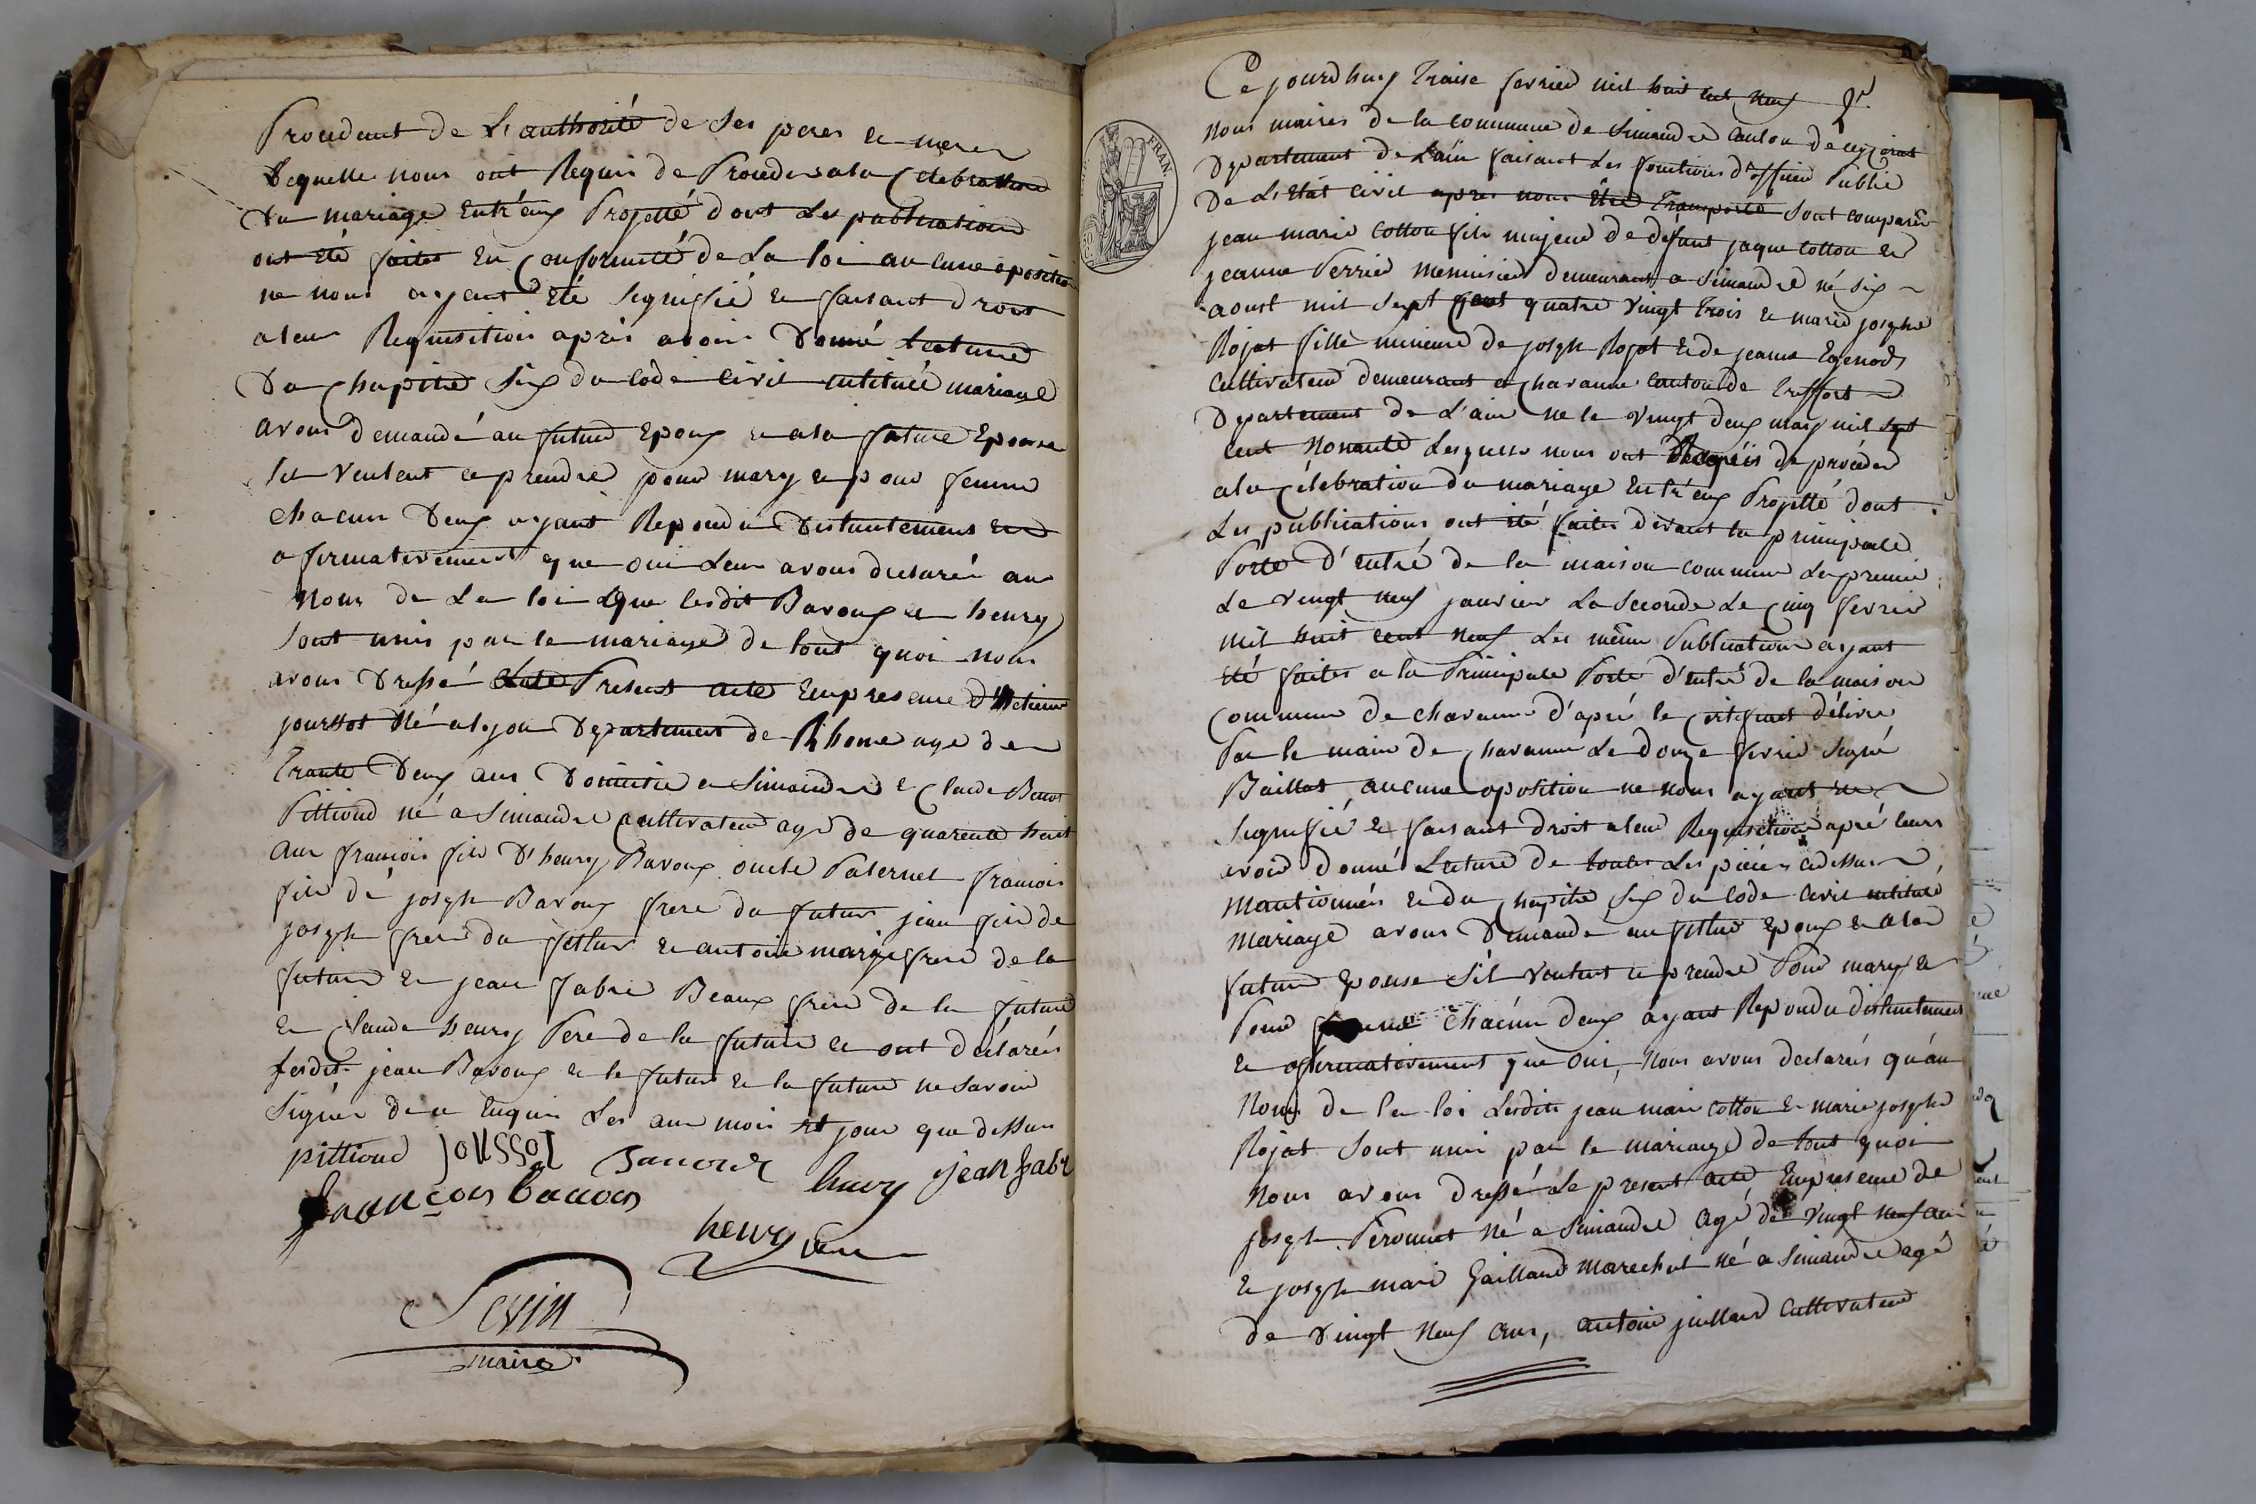 Procedant de L'authorité de Ses peres et meres
Lequelle nous ont Requis de Proceder a la Celebration
Du mariage Entr'eux Projetté dont Les publication
ont été faites En Conformité de La loi aucune oposition
ne nous ayant été signifié et faisant droit
a leur Requisition après avoir Donné lecture
Du Chapitre Six du Code Civil intitulé mariage
avons demandé au futur Epoux et a la future Epouse
sil veulent ce prendre pour mary et pour femme
chacun Deux ayant Repondu Distintement et
afirmativement que oui Leur avons declaré au
nom de La loi Que lesdit Bavoux et henry
sont unis par le mariage de tout quoi nous
avons Dressé Present acte Empresence
joussot Né a lyon Departement de Rhone age de
Trante Deux ans Domicilié a Simandre et Claude
Pittiond né a Simandre Cultivateur agé de quarente huit
ans francois fils D'henry Bavoux oncle Paternel francois
fils dé joseph Bavoux frere du futur jean fils de
joseph frere du futur et antoine marie frere de la
future et jean fabre Beaux frere de la future
et Claude henry Pere de la future et ont déclarés
lesdits jean Bavoux et le futur et la future ne Savoir
Signer de ce Enquis Les an mois et jour que dessus
pittiond JOUSSOT henry jean fabre
francois bavoux
henry
Sevin
maire
FRAN.
Ce jourd'huy Traise fevrier mil huit cent neuf
nous maires de la commune de Simandre Canton de ceyzeriat
Departement de L'ain faisant Les fonctions d'officier Public
De L'Etat Civil apres nous être Transporté Sont comparus
jean marie cotton fils majeur de défunt jaque cotton et
jeanne Perrier Menuisier demeurant a Simandre né six
aoust mil sept cent quatre vingt trois et marie josephe
Rojat fille mineure de joseph Rojat et de jeanne
Cultivateur demeurant a Chavanne Canton de Treffort
Departement de L'ain né le vingt deux mars mil sept
cent Nonante Lesquels nous ont Requis de procéder
a la Célebration du mariage Entr'eux Projetté dont
Les publications ont été faites devant la principale
Porte D'entré de la maison commune Le premier
Le vingt neuf janvier La Seconde Le Cinq fevrier
mil huit cent neuf Les même Publication ayant
été faites a la Principale Porte d'entré de la maison
Commune de chavanne d'après le Certificat délivré
Par le maire de Chavanne Le douze fevrie signé
Baillat, aucune oposition ne nous ayant été
Signifié et faisant droit a leur Requisition apré leurs
avoir donné Lecture de toutes Les pièces cidessus
mantionnés et du Chapitre Six du Code Civil intitulé
Mariage avons Demandé au futur Epoux et a la
future Epouse s'il veulent ce prendre Pour mary et
Pour femme chacun deux ayant Repondu distinctement
et affirmativement que Oui, nous avons declarés qu'au
Nom de la loi Lesdits jean marie cotton et marie joseph
Rojat Sont unis par le mariage de tout quoi
Nous avons dressé Le present acte Empresence de
joseph Perouset né a Simandre agé de vingt neuf ans
et joseph marie Gaillard Marechal né a Simandre agé
de vingt neuf ans, antoine juillard Cultivateur